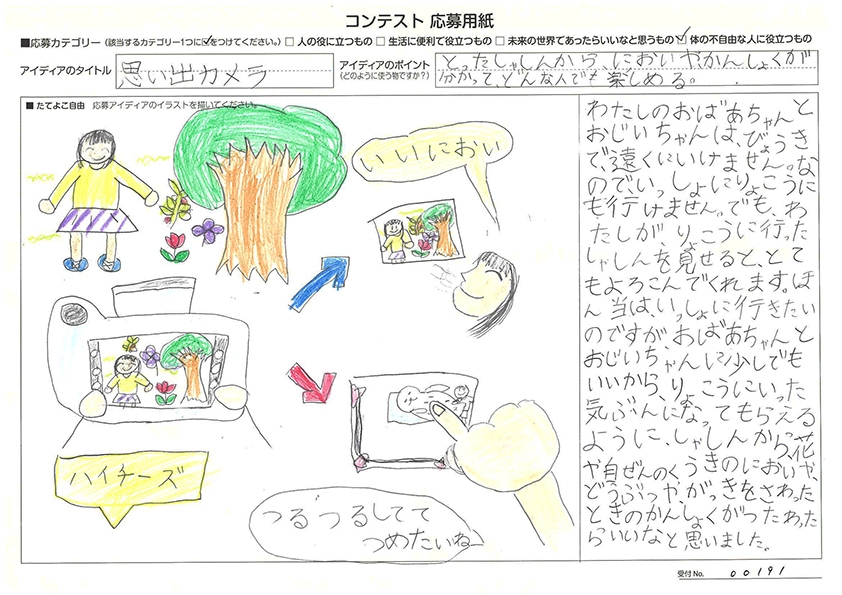 コンテスト 応募用紙
■応募カテゴリー (該当するカテゴリー1つに☑をつけてください。) □ 人の役に立つもの □ 生活に便利で役立つもの □ 未来の世界であったらいいなと思うもの ☑ 体の不自由な人に役立つもの
アイディアのタイトル
思い出カメラ
アイディアのポイント
(どのように使う物ですか?)
とったしゃしんから、においやかんしょくが
分かって、どんな人でも楽しめる。
■ たてよこ自由 応募アイディアのイラストを描いてください。
いいにおい
ハイチーズ
つるつるしてて
つめたいね
わたしのおばあちゃんと
おじいちゃんは、びょうき
で、遠くにいけません。な
のでいっしょにりょこうに
も行けません。でも、わ
たしが、りょこうに行った
しゃしんを見せると、とて
もよろこんでくれます。ほ
ん当は、いっしょに行きたい
のですが、おばあちゃんと
おじいちゃんに少しでも
いいから、りょこうにいった
気ぶんになってもらえる
ように、しゃしんから、花
や自ぜんのくうきのにおいや、
どうぶつや、がっきをさわった
ときのかんしょくがつたわった
らいいなと思いました。
受付No. 00191